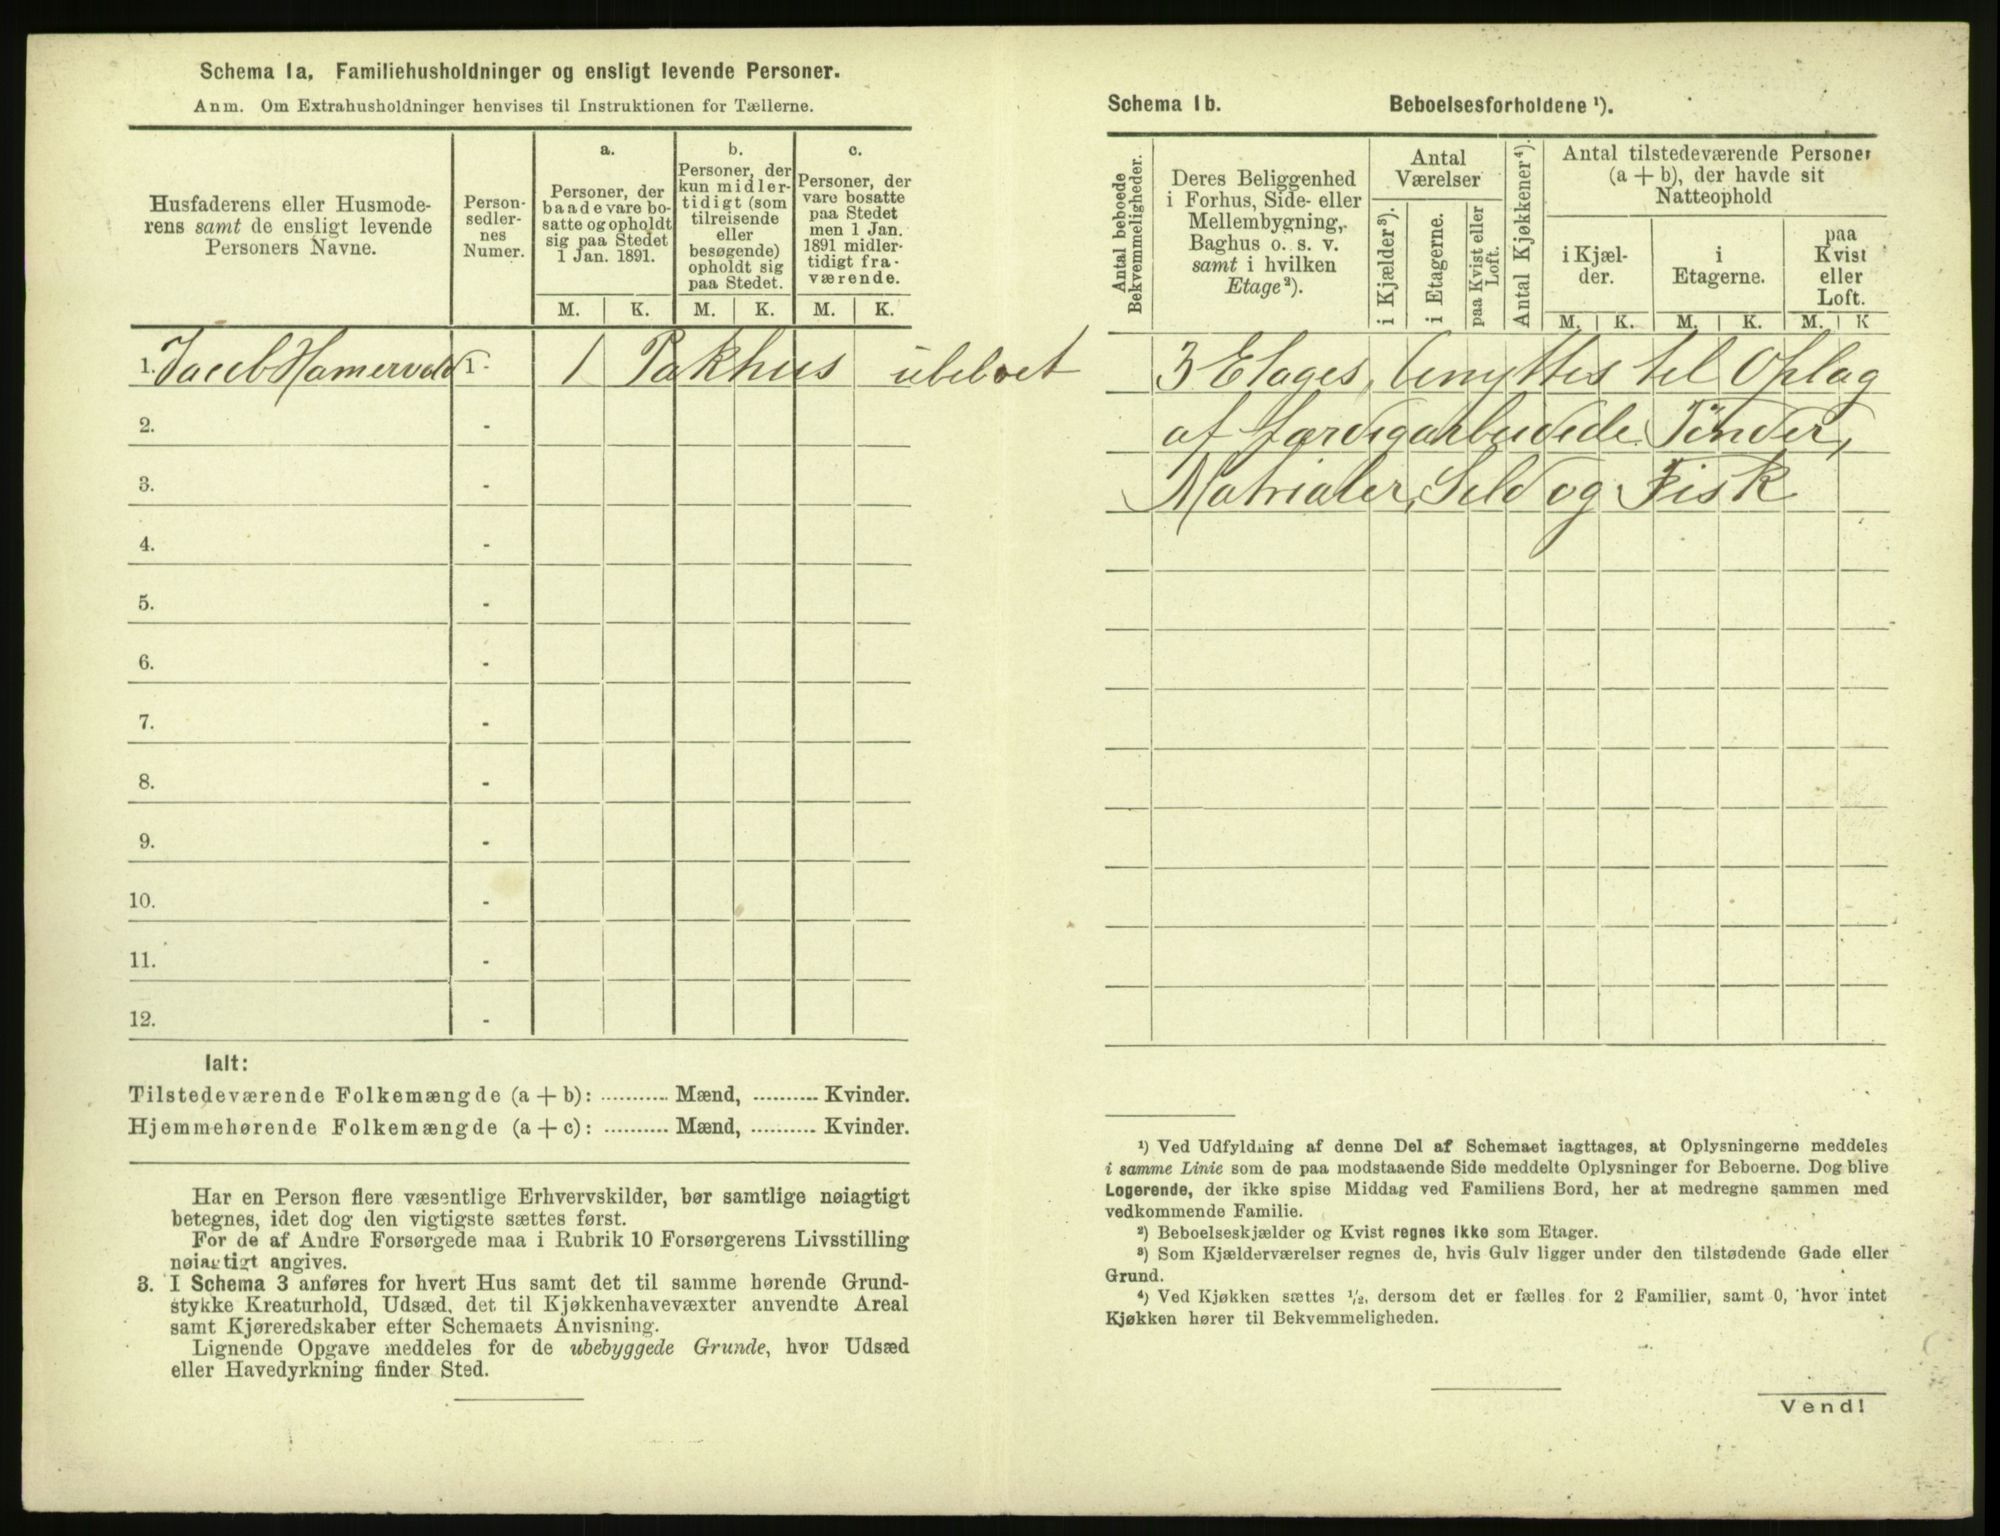 Schema 1a. Familiehusholdninger og ensligt levende Personer.
Anm. Om Extrahusholdninger henvises til Instruktionen for Tællerne.
Husfaderens eller Husmode-
rens samt de ensligt levende
Personers Navne.
Person-
sedler-
nes
Numer.
a.
Personer, der
baade vare bo-
satte og opholdt
sig paa Stedet
1 Jan. 1891.
b.
Personer, der
kun midler-
tidigt (som
tilreisende
eller
besøgende)
opholdt sig
paa Stedet.
c.
Personer, der
vare bosatte
paa Stedet
men 1 Jan.
1891 midler-
tidigt fra-
værende.
M. K. M. K. M. K.
1. Jacob Hamervold 1. 1 Pakhus ubeboet
2. -
3. -
4. -
5. -
6. -
7. -
8. -
9. -
10. -
11. -
12. -
Ialt:
Tilstedeværende Folkemængde (a + b): ........... Mænd, .......... Kvinder.
Hjemmehørende Folkemængde (a + c): .......... Mænd, .......... Kvinder.
Har en Person flere væsentlige Erhvervskilder, bør samtlige nøiagtigt
betegnes, idet dog den vigtigste sættes først.
For de af Andre Forsørgede maa i Rubrik 10 Forsørgerens Livsstilling
nøiagtigt angives.
3. I Schema 3 anføres for hvert Hus samt det til samme hørende Grund-
stykke Kreaturhold, Udsæd, det til Kjøkkenhavevæxter anvendte Areal
samt Kjøreredskaber efter Schemaets Anvisning.
Lignende Opgave meddeles for de ubebyggede Grunde, hvor Udsæd
eller Havedyrkning finder Sted.
Schema 1b. Beboelsesforholdene ¹).
Antal beboede
Bekvemmeligheder.
Deres Beliggenhed
i Forhus, Side- eller
Mellembygning,
Baghus o. s. v.
samt i hvilken
Etage²).
Antal
Værelser
i Kjælder ³).
i Etagerne.
paa Kvist eller
Loft.
Antal Kjøkkener⁴).
Antal tilstedeværende Personer
(a + b), der havde sit
Natteophold
i Kjæl-
der.
i
Etagerne.
paa
Kvist
eller
Loft.
M. K. M. K. M. K
3 Etages, benyttes til Oplag
af færdigarbeidede Tønder,
Matrialer, Sild og Fisk
¹) Ved Udfyldning af denne Del af Schemaet iagttages, at Oplysningerne meddeles
i samme Linie som de paa modstaaende Side meddelte Oplysninger for Beboerne. Dog blive
Logerende, der ikke spise Middag ved Familiens Bord, her at medregne sammen med
vedkommende Familie.
²) Beboelseskjælder og Kvist regnes ikke som Etager.
³) Som Kjælderværelser regnes de, hvis Gulv ligger under den tilstødende Gade eller
Grund.
⁴) Ved Kjøkken sættes ½, dersom det er fælles for 2 Familier, samt 0, hvor intet
Kjøkken hører til Bekvemmeligheden.
Vend!